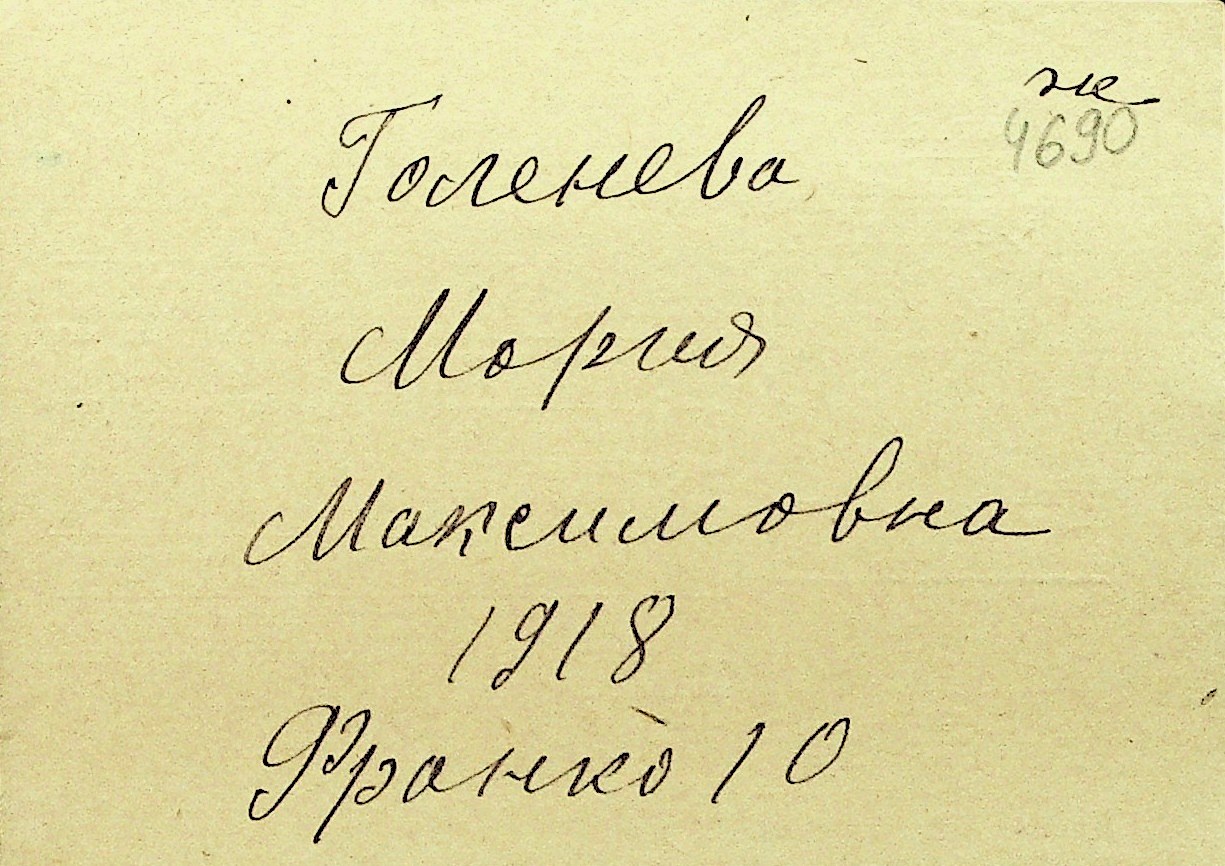 ж
4690
Голенева
Мария
Максимовна
1918
Франко 10